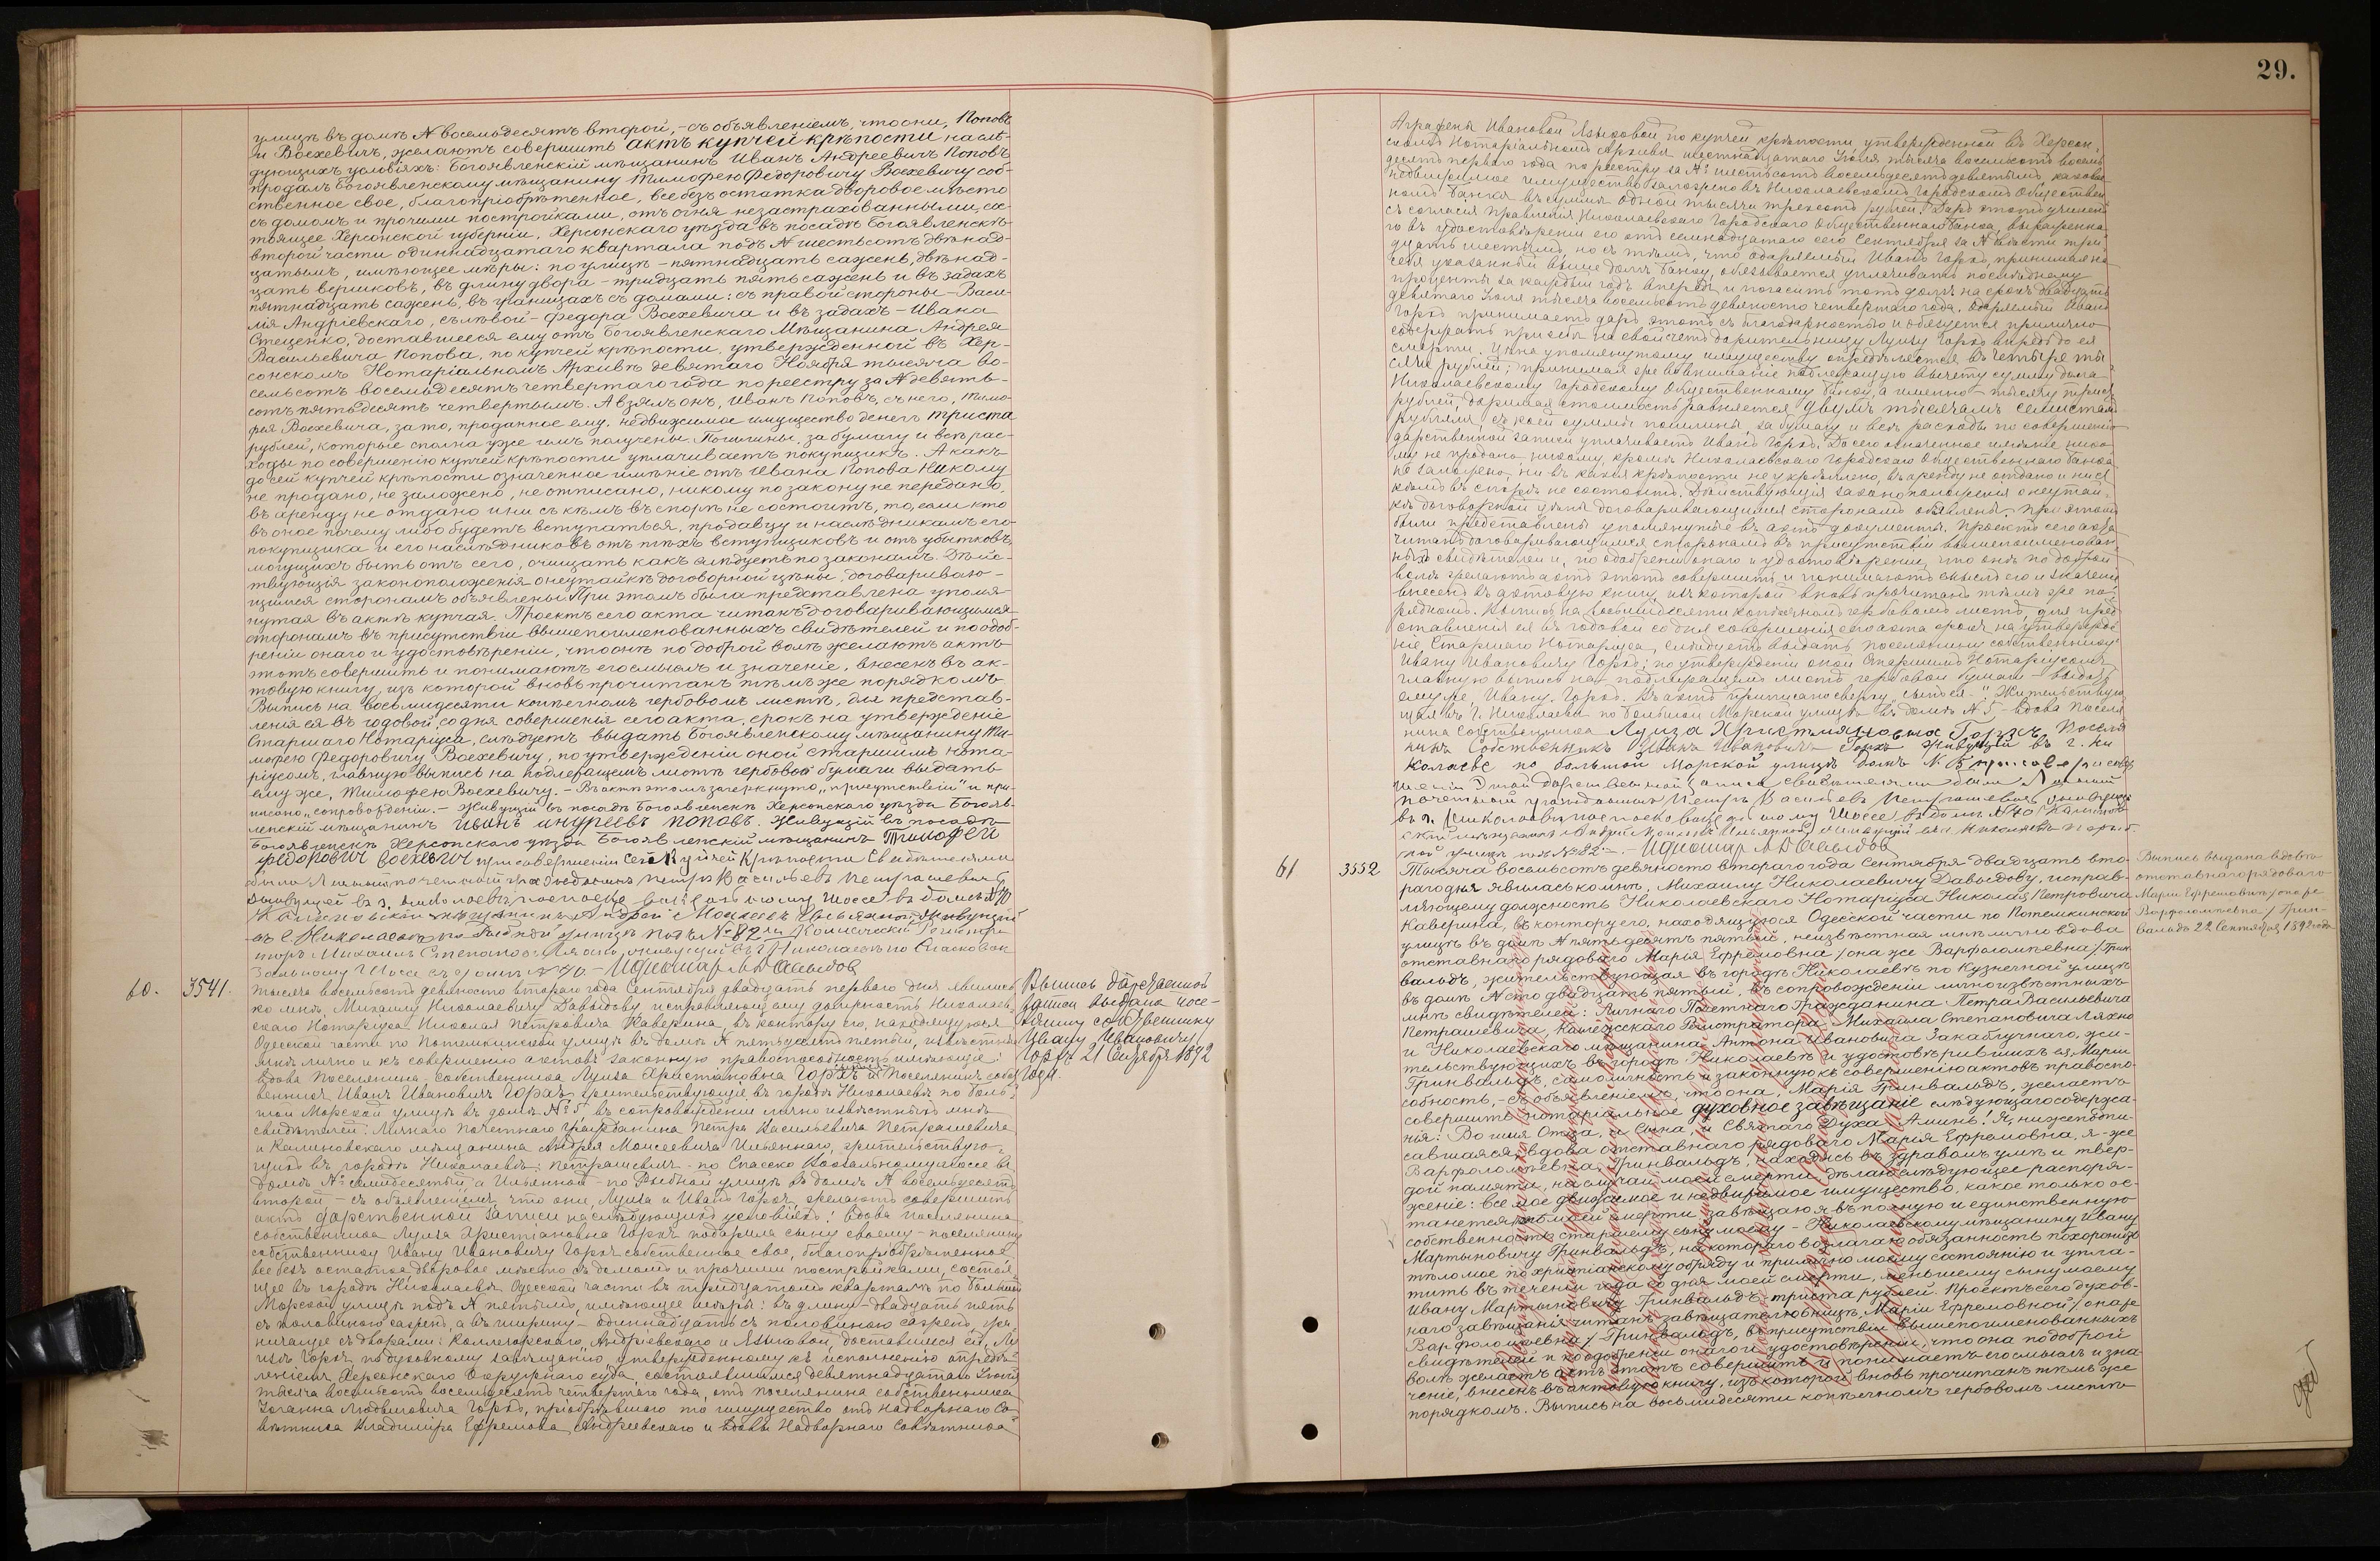 29.
улицѣ въ домѣ № восемьдесятъ второй, - съ объявленіемъ, что они, Поповъ
и Воехевичъ, желаютъ совершить актъ купчей крѣпости, на слѣ-
дующихъ условіяхъ: Богоявленскій мѣщанинъ Иванъ Андреевичъ Поповъ
продалъ Богоявленскому мѣщанину Тимофею Федоровичу Воехевичу соб-
ственное свое, благопріобрѣтенное, все безъ остатка дворовое мѣсто
съ домомъ и прочими постройками, отъ огня незастрахованными, со-
тоящее Херсонской губерніи, Херсонскаго уѣзда въ посадѣ Богоявленскѣ
второй части одиннадцатаго квартала подъ № шестьсотъ двѣнад-
цатымъ, имѣющее мѣры: по улицѣ - пятнадцать сажень, двѣнад-
цать вершковъ, въ длину двора - тридцать пять сажень и въ задахъ
пятнадцать сажень, въ границахъ съ домами: съ правой стороны - Васи-
лія Андріевскаго, съ лѣвой - Федора Воехевича и въ задахъ - Ивана
Стеценко, доставшееся ему отъ Богоявленскаго Мѣщанина Андрея
Васильевича Попова, по купчей крѣпости, утвержденной въ Хер-
сонскомъ Нотаріальномъ Архивѣ девятаго Ноября тысяча во-
семьсотъ восемьдесятъ четвертаго года по реестру за № девять-
сотъ пятьдесятъ четвертымъ. А взялъ онъ, Иванъ Поповъ, съ него, Тимо-
фея Воехевича, за то, проданное ему, недвижимое имущество денегъ триста
рублей, которые сполна уже имъ получены. Пошлины, за бумагу и всѣ рас-
ходы по совершенію купчей крѣпости уплачиваетъ покупщикъ. А какъ
до сей купчей крѣпости означенное имѣніе отъ Ивана Попова никому
не продано, не заложено, не отписано, никому по закону не передано,
въ аренду не отдано и ни съ кѣмъ въ спорѣ не состоитъ, то, если кто
въ оное почему либо будетъ вступаться, продавцу и наслѣдникамъ его
покупщика и его наслѣдниковъ отъ тѣхъ вступщиковъ и отъ убытковъ,
могущихъ быть отъ сего, очищать какъ слѣдуетъ по законамъ. Дѣйс-
твующія законоположенія о неутайкѣ договорной цѣны, договариваю-
щимся сторонамъ объявлены. При этомъ была представлена упомя-
нутая въ актѣ купчая. Проектъ сего акта читанъ договаривающимся
сторонамъ въ присутствіи вышепоименованныхъ свидѣтелей и по одоб-
реніи онаго и удостовѣреніи, что онѣ по доброй волѣ желаютъ актъ
этотъ совершить и понимаютъ его смыслъ и значеніе, внесенъ въ ак-
товую книгу, изъ которой вновь прочитанъ тѣмъ же порядкомъ.
Выпись на восьмидесяти копѣечномъ гербовомъ листѣ, для представ-
ленія ея въ годовой, со дня совершенія сего акта, срокъ на утвержденіе
Старшаго Нотаріуса, слѣдуетъ выдать Богоявленскому мѣщанину Ти-
мофею Федоровичу Воехевичу, по утвержденіи оной старшимъ нота-
ріусомъ, главную выпись на подлежащемъ листѣ гербовой бумаги выдать
ему же, Тимофею Воехевичу. - Въ актѣ этомъ зачеркнуто „присутствіи“ и при-
писано „сопровожденіи. - Живущій въ посадѣ Богоявленскѣ Херсонскаго уѣзда Богояв-
ленскій мѣщанинъ Иванъ Андреевъ Поповъ. Живущій въ посадѣ
Богоявленскѣ Херсонскаго уѣзда Богоявленскій мѣщанинъ Тимофей
Федоровичъ Воехевичъ при совершеніи сей купчей крѣпости свидѣтелями
были Личный почетный гражданинъ Петръ Васильевъ Петрашевичъ
60.
3541.
Тысяча восемьсотъ девяносто втораго года Сентября двадцать перваго дня явились
ко мнѣ, Михаилу Николаевичу Давыдову, исправляющему должность Николаев-
скаго Нотаріуса Николая Петровича Каверина, въ контору его, находящуюся
Одесской части по Потемкинской улицѣ въ домѣ № пятьдесятъ пятый, извѣстные
мнѣ лично и къ совершенію актовъ законную правоспособность имѣющіе:
вдова поселянина-собственника Луиза Христіановна Горхъ и поселянинъ собст-
венникъ Иванъ Ивановичъ Горхъ, жительствующіе въ городѣ Николаевѣ по Боль-
шой Морской улицѣ въ домѣ № 5, въ сопровожденіи лично извѣстныхъ мнѣ
свидѣтелей: Личнаго Почетнаго Гражданина Петра Васильевича Петрашевича
и Калиновскаго мѣщанина Андрея Моисеевича Ильяннаго, жительствую-
щихъ въ городѣ Николаевѣ: Петрашевичъ - по Спасско Вокзальному шоссе въ
домѣ № семидесятый, а Ильянной - по Рыбной улицѣ въ домѣ № восемьдесятъ
второй - съ объявленіемъ, что они, Луиза и Иванъ Горхъ, желаютъ совершить
актъ дарственной записи на слѣдующихъ условіяхъ: вдова поселянина
собственника Луиза Христіановна Горхъ подарила сыну своему - поселянину
собственнику Ивану Ивановичу Горхъ собственное свое, благопріобрѣтенное,
все безъ остатка дворовое мѣсто съ домомъ и прочими постройками, состоя-
щее въ городѣ Николаевѣ Одесской части въ тридцатомъ кварталѣ по Большой
Морской улицѣ подъ № пятымъ, имѣющее мѣры: въ длину - двадцать пять
съ половиною сажень, а въ ширину - одиннадцать съ половиною сажень, гра-
ничащее съ дворами: Коллегорскаго, Андріевскаго и Языковой, доставшееся ей, Лу-
изѣ Горхъ, по духовному завѣщанію утвержденному къ исполненію опредѣ-
леніемъ Херсонскаго Окружнаго суда, состоявшимся девятнадцатаго Іюня
тысяча восемьсотъ восемьдесятъ четвертаго года, отъ поселянина собственника
Іоганна Людвиговича Горхъ, пріобрѣвшаго то имущество отъ Надворнаго Со-
вѣтника Владиміра Ефремова Андріевскаго и вдовы Надворнаго Совѣтника
Выпись дарственной
записи выдана посе-
лянину собственнику
Ивану Ивановичу
Горхъ 21 Сентября 1892
года.
Аграфены Ивановой Языковой по купчей крѣпости, утвержденной въ Херсон-
скомъ Нотаріальномъ Архивѣ шестнадцатаго Іюля тысяча восемьсотъ восемь-
десятъ перваго года по реестру за № шестьсотъ восемьдесятъ девятымъ, каковое
недвижимое имущество заложено въ Николаевскомъ Городскомъ Обществен-
номъ Банкѣ въ суммѣ одной тысячи трехсотъ рублей. Даръ этотъ учиненъ
съ согласія Правленія Николаевскаго Городскаго Общественнаго Банка, выраженна-
го въ удостовѣреніи его отъ семнадцатаго сего Сентября за № двѣсти трид-
цать шестымъ, но съ тѣмъ, что одаряемый Иванъ Горхъ, принимая на
себя указанный выше долгъ Банку, обязывается уплачивать послѣднему
проценты за каждый годъ впередъ и погасить тотъ долгъ на срокъ двадцать
девятаго Іюля тысяча восемьсотъ девяносто четвертаго года. Одаряемый Иванъ
Горхъ принимаетъ даръ этотъ съ благодарностью и обязуется прилично
содержать при себѣ на свой счетъ дарительницу Луизу Горхъ впредь до ея
смерти. Цѣна упомянутому имуществу опредѣляется въ четыре ты-
сячи рублей; принимая же во вниманіе подлежащую вычету сумму долга
Николаевскому Городскому Общественному Банку, а именно - тысячу триста
рублей, даримая стоимость равняется двумъ тысячамъ семистамъ
рублямъ, съ коей суммы пошлины, за бумагу и всѣ расходы по совершенію
дарственной записи уплачиваетъ Иванъ Горхъ. До сего означенное имѣніе нико-
му не продано, никому, кромѣ Николаевскаго Городскаго Общественнаго Банка,
не заложено, ни въ какія крѣпости не укрѣплено, въ аренду не отдано и ни съ
кѣмъ въ спорѣ не состоитъ. Дѣйствующія законоположенія о неутай-
кѣ договорной цѣны договаривающимся сторонамъ объявлены. При этомъ
были представлены упомянутые въ актѣ документы. Проектъ сего акта
читанъ договаривающимся сторонамъ въ присутствіи вышепоименован-
ныхъ свидѣтелей и, по одобреніи онаго и удостовѣреніи, что онѣ по доброй
волѣ желаютъ актъ этотъ совершить и понимаютъ смыслъ его и значеніе
внесенъ въ актовую книгу, изъ которой вновь прочитанъ тѣмъ же по-
рядкомъ. Выпись на восьмидесяти копѣечномъ гербовомъ листѣ, для пред-
ставленія ея въ годовой со дня совершенія сего акта срокъ на утвержде-
ніе Старшаго Нотаріуса, слѣдуетъ выдать поселянину собственнику
Ивану Ивановичу Горхъ; по утвержденіи оной Старшимъ Нотаріусомъ
главную выпись на подлежащемъ листѣ гербовой бумаги выдать
ему же, Ивану Горхъ.
щая въ г. Николаевѣ по Большой Морской улицѣ въ домѣ № 5 - вдова поселя-
нина собственника Луиза Христіановна Горхъ. Поселя-
нинъ собственникъ Иванъ Ивановичъ Горхъ живущій въ г. Ни-
колаевѣ по Большой Морской улицѣ домъ № 5 при совер
шеніи этой дарственной записи свидѣтелями были Личный
почетный гражданинъ Петръ Васильевъ Петрашевичъ
61
3552
Тысяча восемьсотъ девяносто втораго года Сентября двадцать вто-
рага дня явилась ко мнѣ, Михаилу Николаевичу Давыдову, исправ-
ляющему должность Николаевскаго Нотаріуса Николая Петровича
Каверина, въ контору его, находящуюся Одесской части по Потемкинской
улицѣ въ домѣ № пятьдесятъ пятый, неизвѣстная мнѣ лично вдова
отставнаго рядоваго Марья Ефремовна /она же Варфоломѣевна/ Грин-
вальдъ, жительствующая въ городѣ Николаевѣ по Кузнечной улицѣ
въ домѣ № сто двадцать пятый, въ сопровожденіи лично извѣстныхъ
мнѣ свидѣтелей: Личнаго Почетнаго Гражданина Петра Васильевича
Петрашевича, Коллежскаго Регистратора Михаила Степановича Ляхно
и Николаевскаго мѣщанина Антона Ивановича Закаблучнаго, жи-
тельствующихъ въ городѣ Николаевѣ и удостовѣрившихъ ея, Маріи
Гринвальдъ, самоличность и законную къ совершенію актовъ правоспо-
собность, - съ объявленіемъ, что она, Марія Гринвальдъ, желаетъ
совершить нотаріальное духовное завѣщаніе слѣдующаго содержа-
нія: Во имя Отца, и Сына, и Святаго Духа. Аминь! Я, нижеподпи-
савшаяся, вдова отставнаго рядоваго Марія Ефремовна, я-же
Варфоломѣевна, Гринвальдъ, находясь въ здравомъ умѣ и твер-
дой памяти, на случай моей смерти, дѣлаю слѣдующее распоря-
женіе: все мое движимое и недвижимое имущество, какое только ос-
танется по моей смерти завѣщаю я въ полную и единственную
собственность старшему сыну моему - Николаевскому мѣщанину Ивану
Мартыновичу Гринвальдъ, на котораго возлагаю обязанность похоронить
тѣло мое по христіанскому обряду и прилично моему состоянію и упла-
тить въ теченіи года со дня моей смерти, меньшему сыну моему
Ивану Мартыновичу Гринвальдъ - триста рублей. Проектъ сего духов-
наго завѣщанія читанъ завѣщательницѣ, Маріи Ефремовной /она же
Варфоломѣевна/ Гринвальдъ, въ присутствіи вышепоименованныхъ
свидѣтелей и по одобреніи онаго и удостовѣреніи, что она по доброй
волѣ желаетъ актъ этотъ совершить и понимаетъ его смыслъ и зна-
ченіе, внесенъ въ актовую книгу, изъ которой вновь прочитанъ тѣмъ же
порядкомъ. Выпись на восьмидесяти копѣечномъ гербовомъ листѣ
Выпись выдана вдовѣ
отставнаго рядоваго
Маріи Ефремовнѣ /она же
Варфоломѣевна/ Грин-
вальдъ 22 Сентября 1892 года